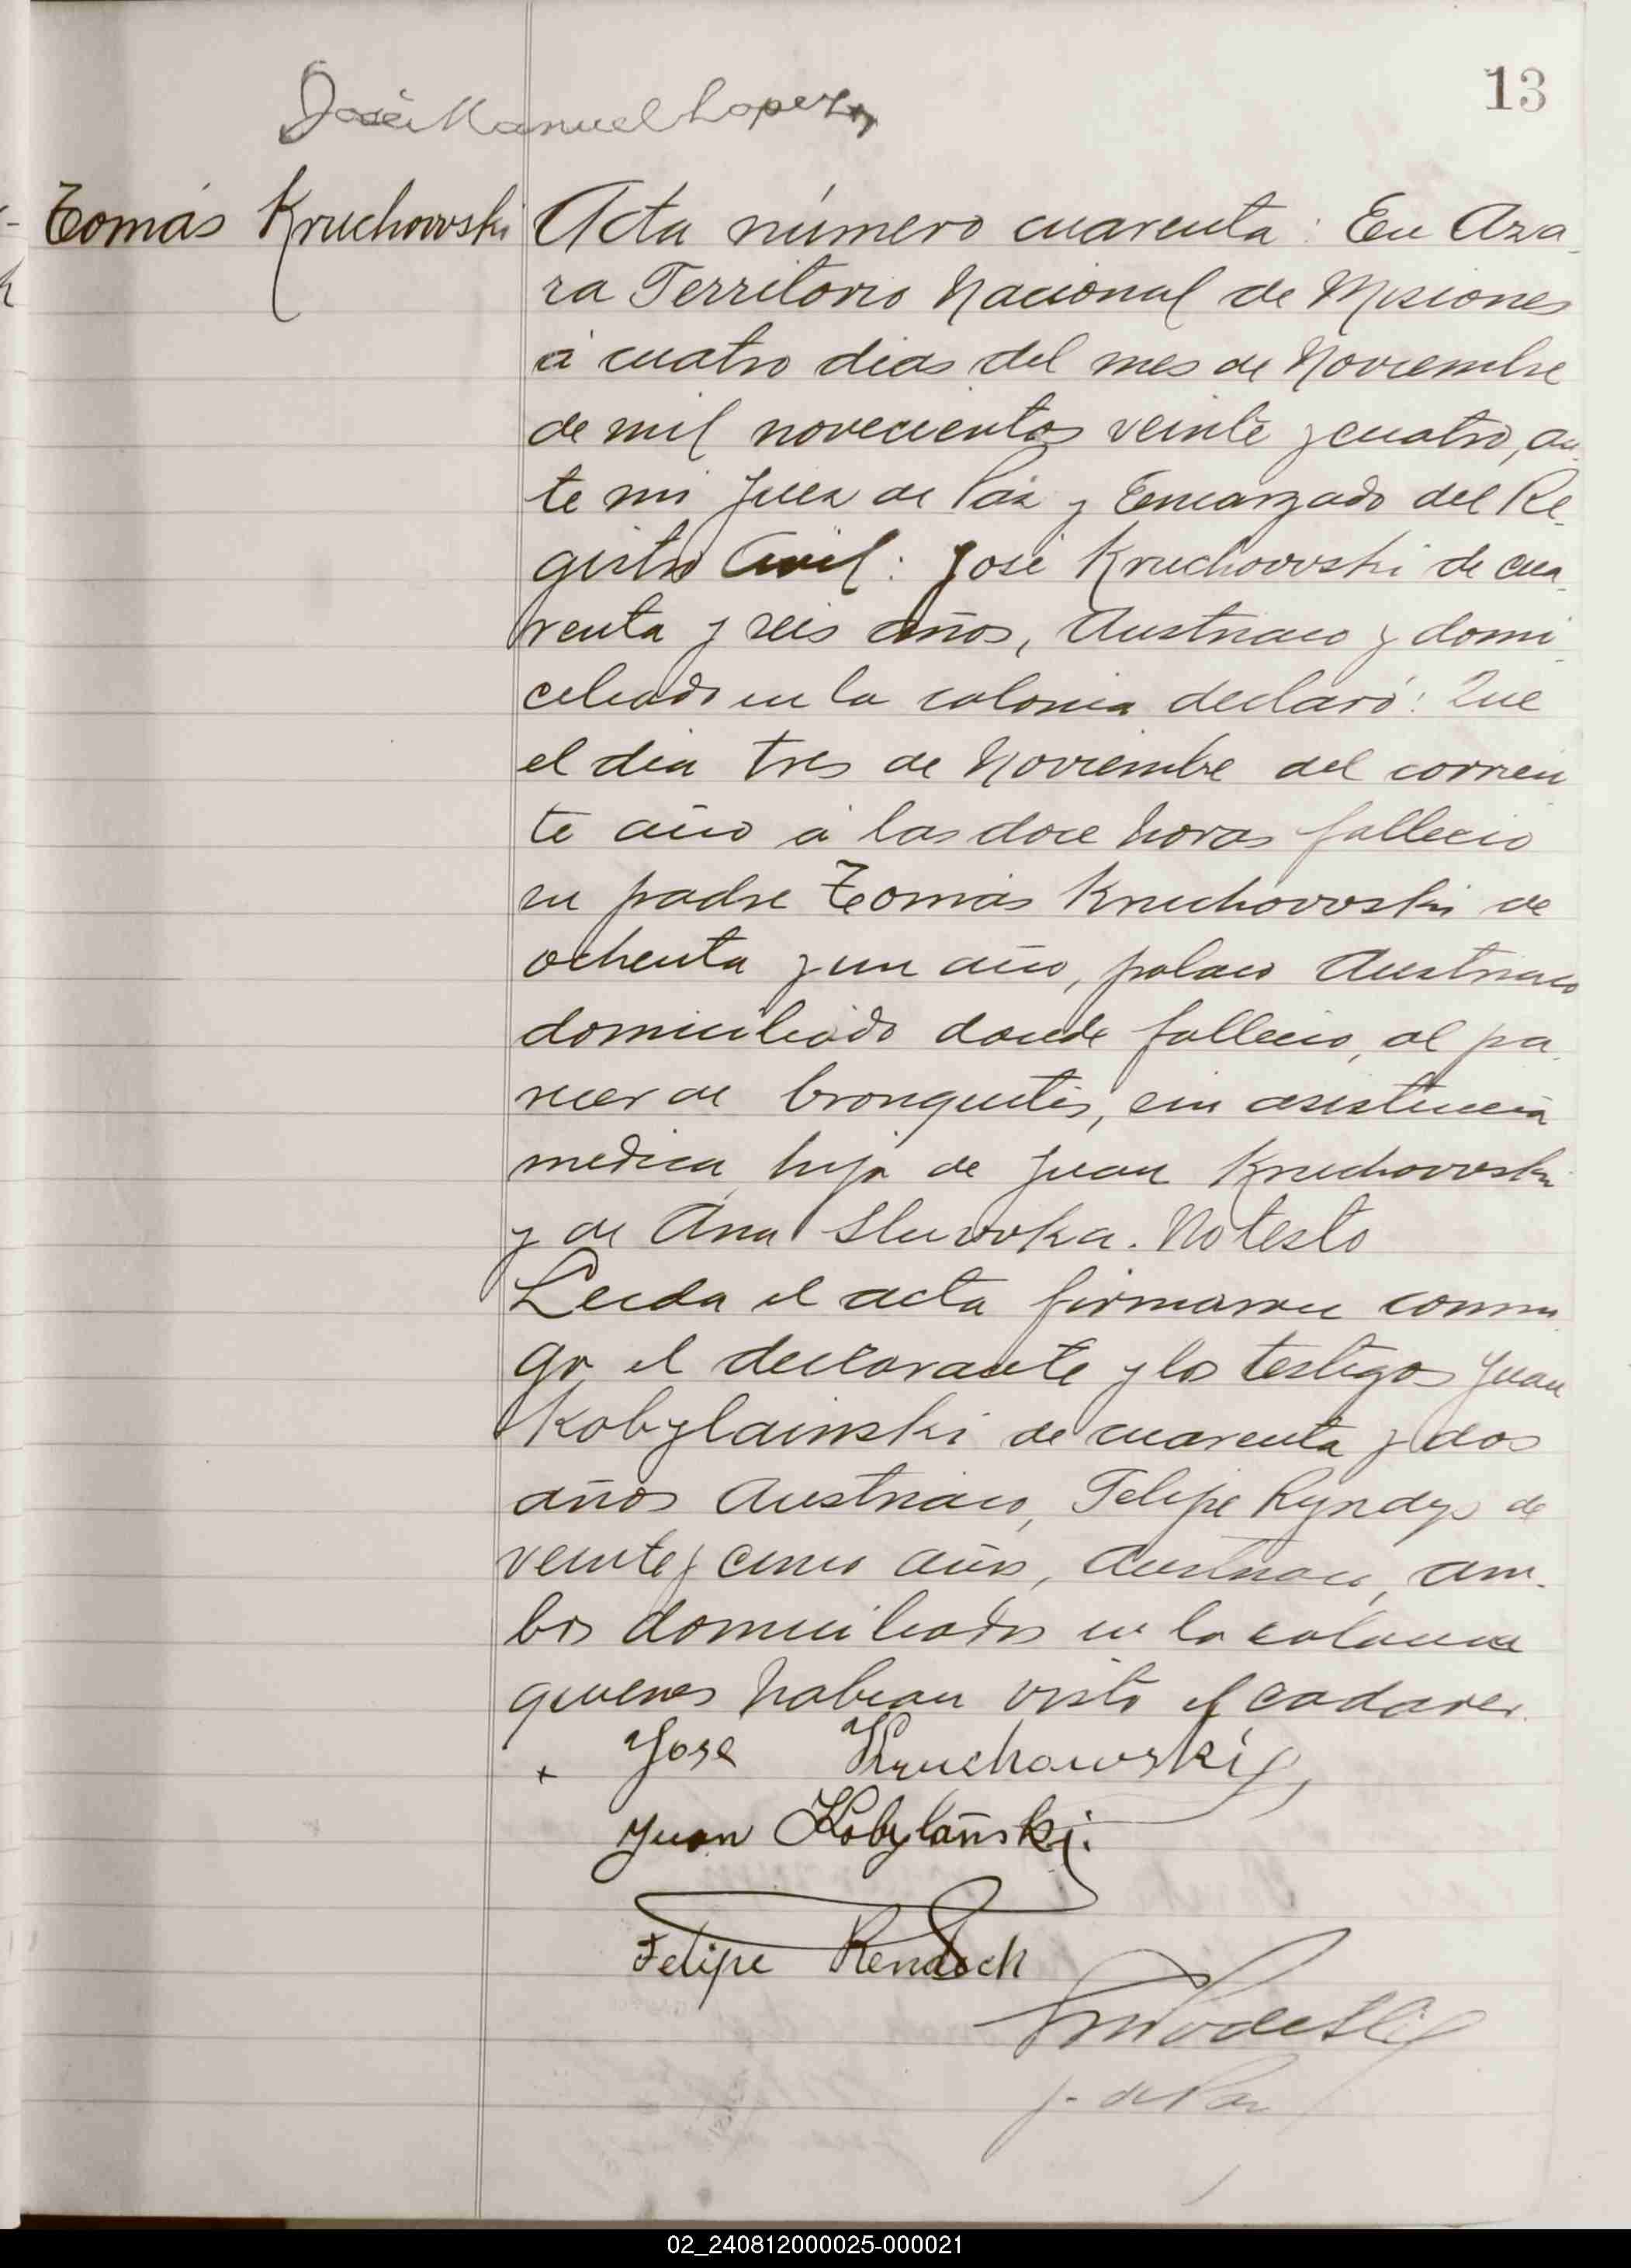 13
José Manuel Lopez
Tomás Kruchowski
Acta número cuarenta: En Aza-
ra Territorio Nacional de Misiones
á cuatro dias del mes de Noviembre
de mil novecientos veinte y cuatro, an-
te mi Juez de Páz y Encargado del Re-
gistro Civil: José Kruchowski de cua-
renta y seis años, Austriaco y domi-
ciliado en la colonia declaró: Que
el dia tres de Noviembre del corrien-
te año á las doce horas fallecio
su padre Tomás Kruchowski de
ochenta y un año, polaco Austriaco
domiciliado donde fallecio, al pa-
recer de bronquitis, sin asistencia
medica, hijo de Juan Kruchowski
y de Ana Sluwka. No testo
Leida el acta firmaron conmi-
go el declarante y los testigos Juan
Kobylainski de cuarenta y dos
años Austriaco, Felipe Ryndys de
veinte y cinco años, Austriaco, am-
bos domiciliados en la colonia
quienes habian visto el cadaver.
Jose Kruchowski
Juan Kobylañski.
Felipe Rendoch
J. de Paz
02_240812000025-000021